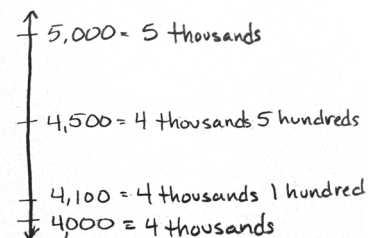 5,000 = 5 thousands
4,500 = 4 thousands 5 hundreds
4,100 = 4 thousands 1 hundred
4000 = 4 thousands